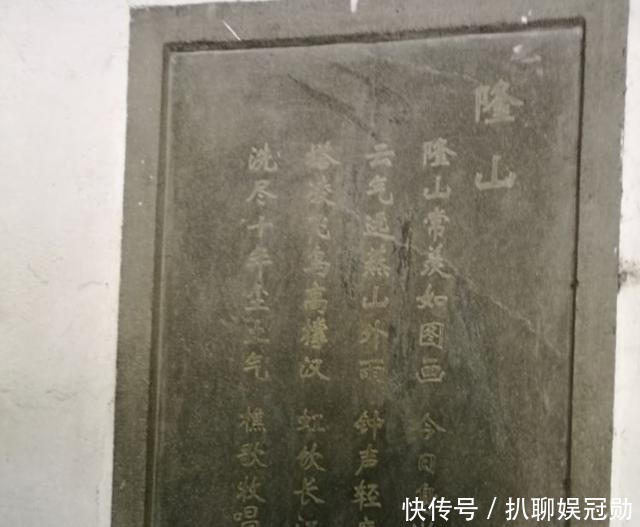 隆山
隆山常羡如图画 今日
云气遥蒸山外雨 钟声轻
塔凌飞鸟高擎汉 虹饮长
洗尽十年尘土气 樵歌牧唱
快传号／扒聊娱冠勋